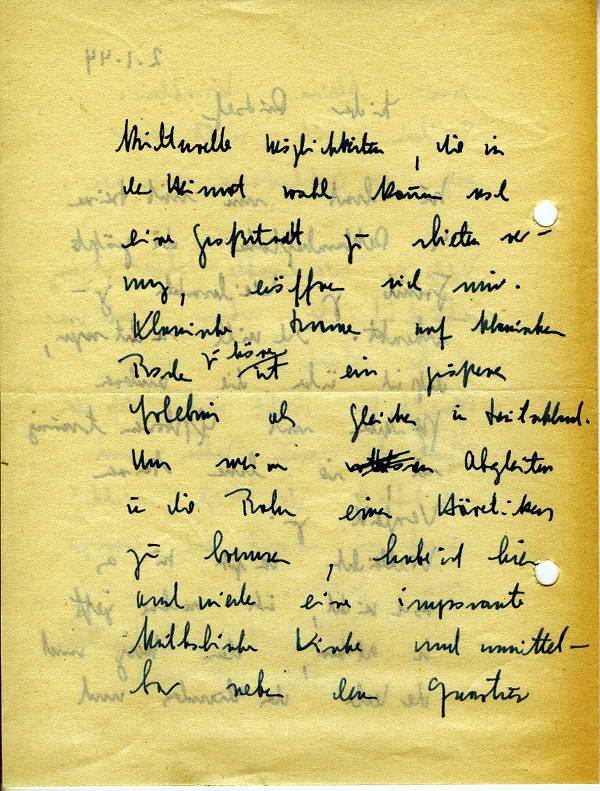 Kulturelle Möglichkeiten, die in
der Heimat wohl kaum
eine Großstadt zu bieten ver-
mag, eröffnen sich mir.
Klassische auf klassischem
Boden zu hören ist ein größeres
Erlebnis als gleiches in Deutschland.
Um mein Abgleiten
in die Bahn eines Häretikers
zu bremsen, habe ich hier
auch wieder eine imposante
Katholische Kirche und unmittel-
bar neben dem Quartier